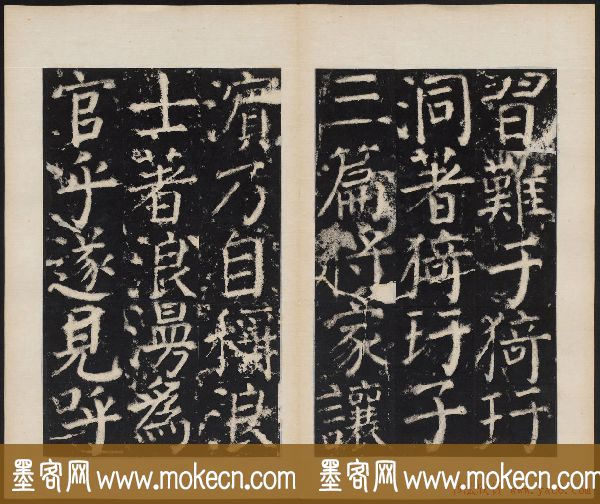 習難于猗玗
洞著猗玗子
三篇將家讓
濱乃自稱浪
士著浪漫爲
官乎遂見呼
墨客网 www.mokecn.com
墨客网 www.mokecn.com